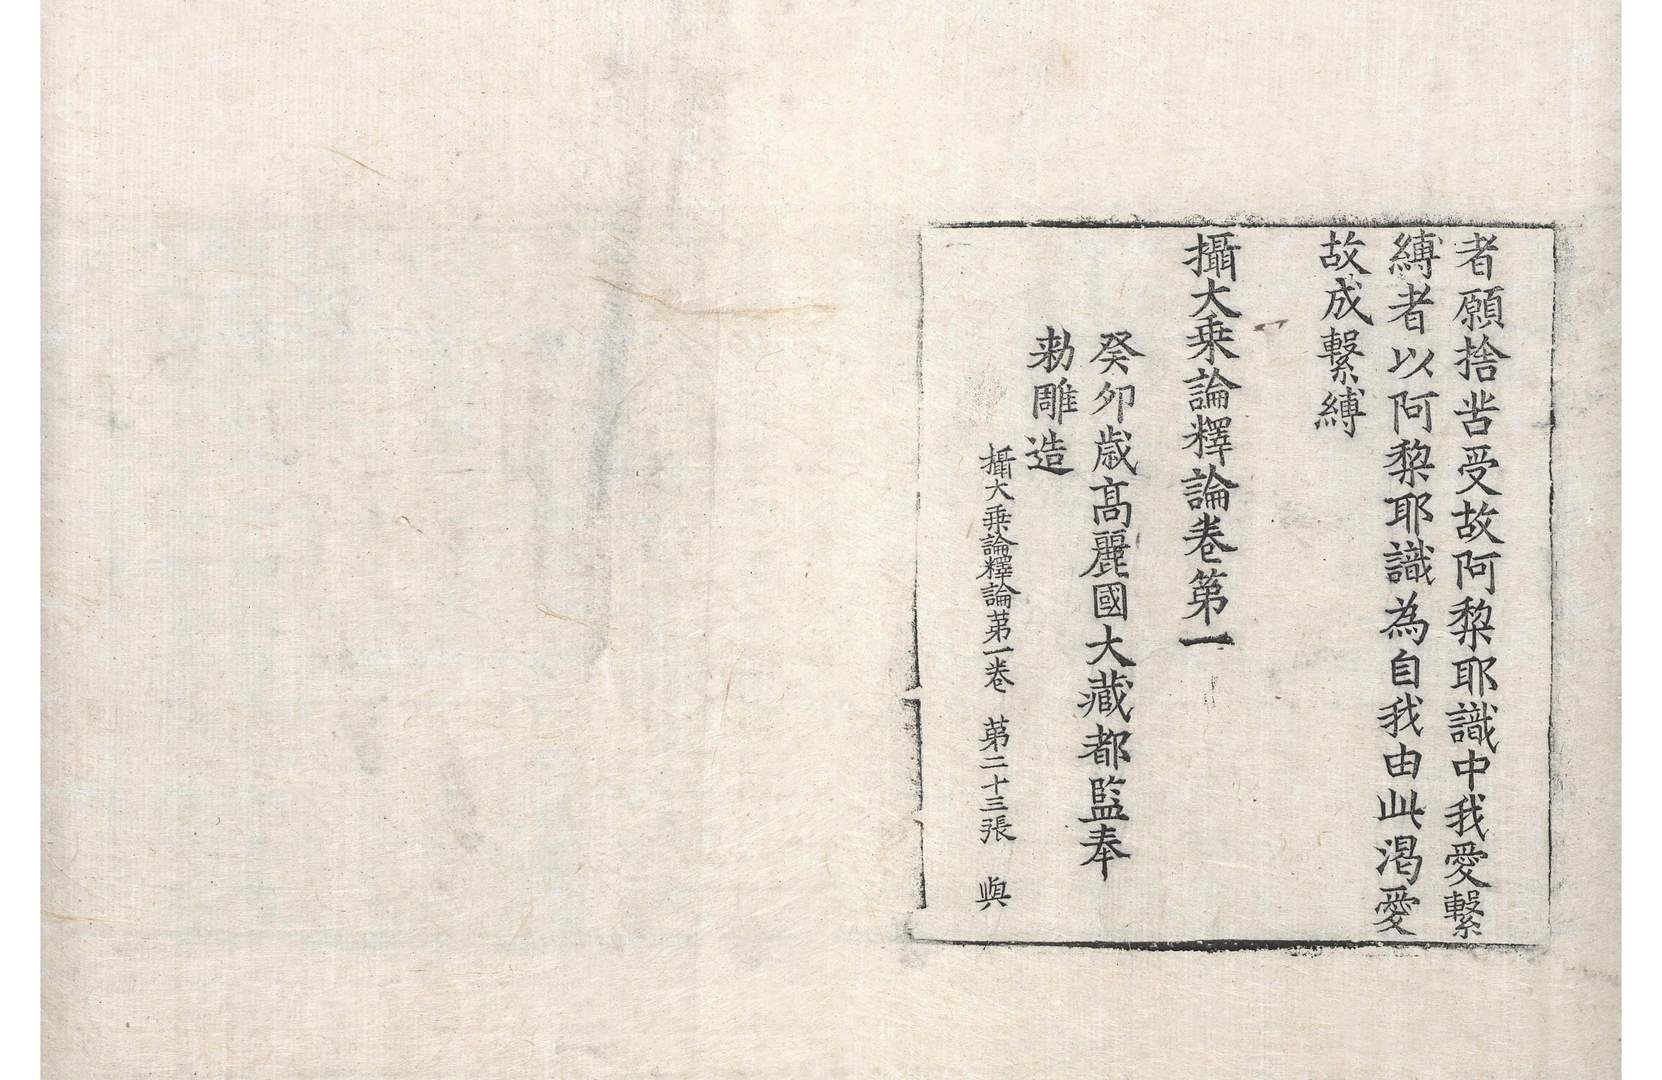 者願捨苦受故阿黎耶識中我愛繫
縛者以阿黎耶識為自我由此渴愛
故成繫縛
攝大乗論釋論卷第一
癸卯歳高麗國大藏都監奉
勑雕造
攝大乗論釋論苐一卷 苐二十三張 㒜